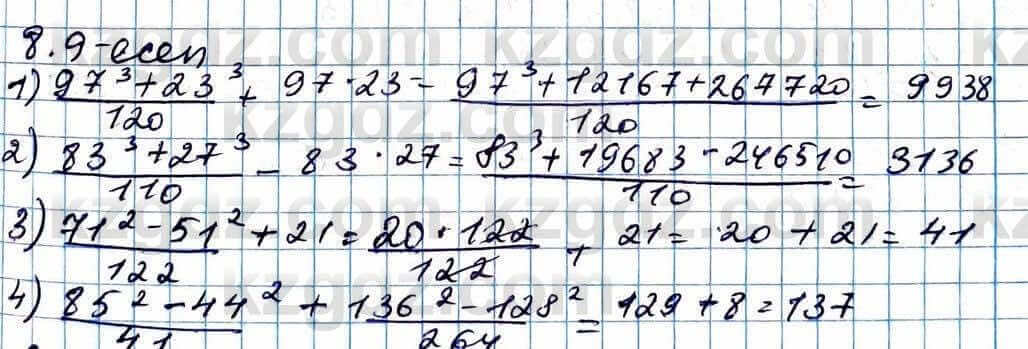 8.9-есеп
1) (97³+23³)/120 + 97·23 = (97³+12167+267720)/120 = 9938
2) (83³+27³)/110 - 83·27 = (83³+19683-246510)/110 = 3136
3) (71²-51²)/122 + 21 = (20·122)/122 + 21 = 20+21 = 41
4) (85²-44²)/41 + (136²-128²)/264 = 129+8 = 137